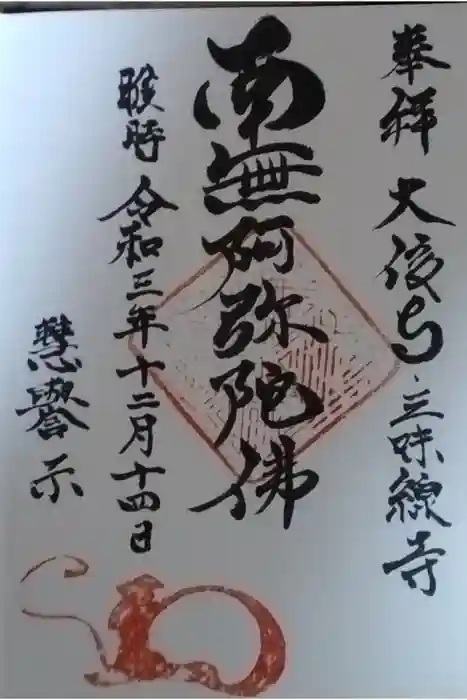 奉拝 大信寺・三味線寺
南無阿弥陀佛
時 令和三年十二月十四日
慧譽 示